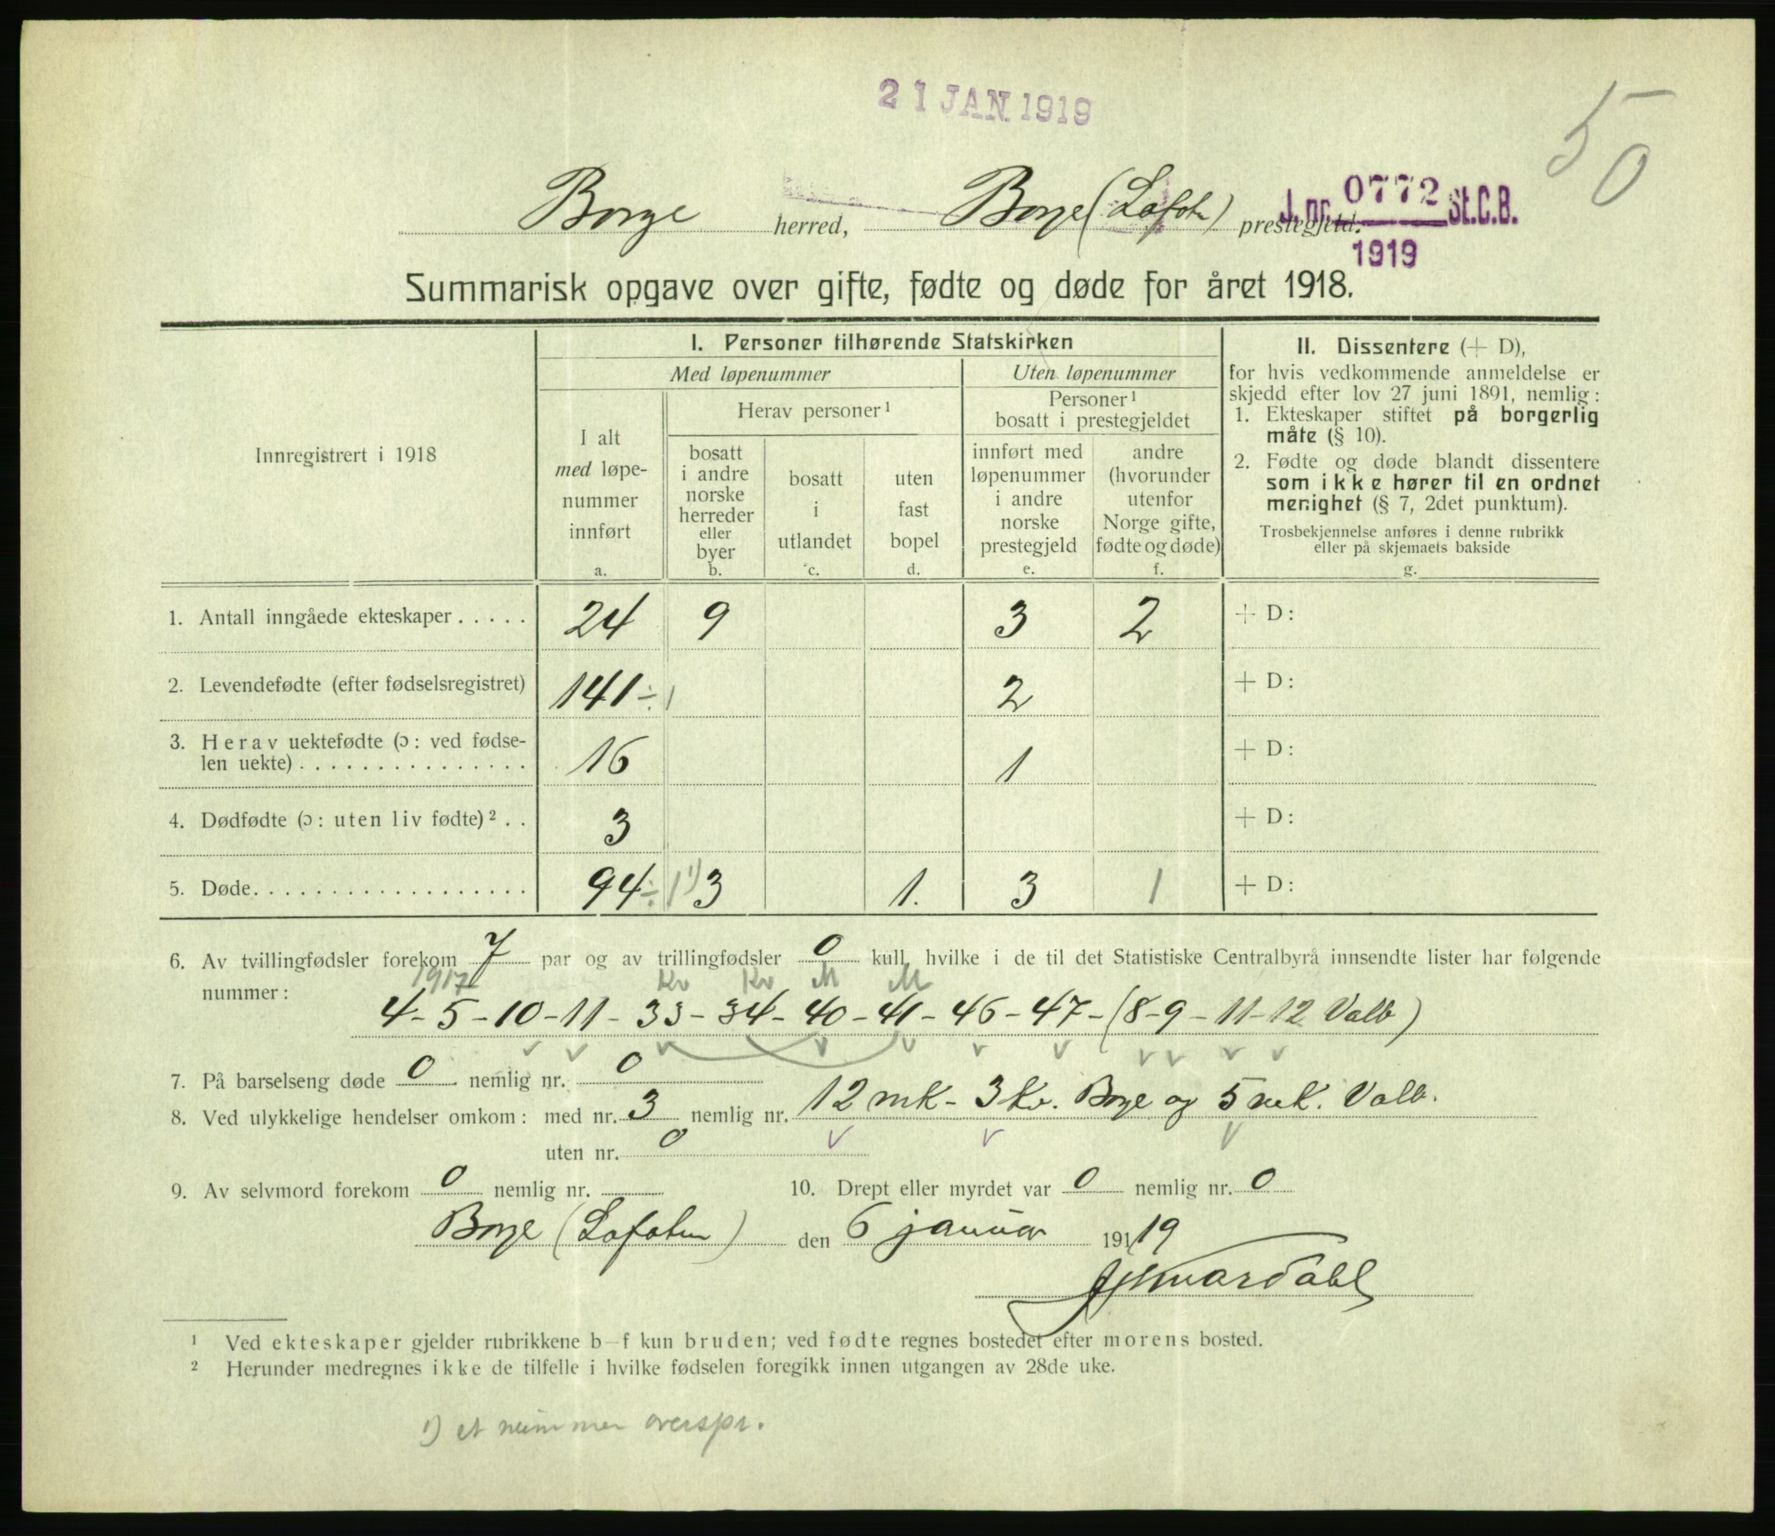 21 JAN 1919
50
Borge herred, Borge (Lofoten) prestegjeld.
J. nr. 0772 St.C.B.
1919
Summarisk opgave over gifte, fødte og døde for året 1918.
Innregistrert i 1918
I. Personer tilhørende Statskirken
Med løpenummer
Uten løpenummer
I alt
med løpe-
nummer
innført
a.
Herav personer¹
bosatt
i andre
norske
herreder
eller
byer
b.
bosatt
i
utlandet
c.
uten
fast
bopel
d.
Personer¹
bosatt i prestegjeldet
innført med
løpenummer
i andre
norske
prestegjeld
e.
andre
(hvorunder
utenfor
Norge gifte,
fødte og døde)
f.
II. Dissentere (+ D),
for hvis vedkommende anmeldelse er
skjedd efter lov 27 juni 1891, nemlig:
1. Ekteskaper stiftet på borgerlig
måte (§ 10).
2. Fødte og døde blandt dissentere
som ikke hører til en ordnet
menighet (§ 7, 2det punktum).
Trosbekjennelse anføres i denne rubrikk
eller på skjemaets bakside
g.
1. Antall inngåede ekteskaper . . . . . 24 9 3 2 + D:
2. Levendefødte (efter fødselsregistret) 141 ÷ 1 2 + D:
3. Herav uektefødte (ɔ: ved fødse-
len uekte) . . . . . . . . . . . . . . . 16 1 + D:
4. Dødfødte (ɔ: uten liv fødte)² . . 3 + D:
5. Døde. . . . . . . . . . . . . . . . . . 94 ÷ 1 ¹) 3 1. 3 1 + D:
6. Av tvillingfødsler forekom 7 par og av trillingfødsler 0 kull, hvilke i de til det Statistiske Centralbyrå innsendte lister har følgende
nummer:
1917 Kv Kv M M
4 - 5 - 10 - 11 - 33 - 34 - 40 - 41 - 46 - 47 - (8 - 9 - 11 - 12 Valb)
7. På barselseng døde 0 nemlig nr. 0
8. Ved ulykkelige hendelser omkom: med nr. 3 nemlig nr. 12 mk - 3 Kv. Borge og 5 mk. Valb.
uten nr. 0
9. Av selvmord forekom 0 nemlig nr.
10. Drept eller myrdet var 0 nemlig nr. 0
Borge (Lofoten) den 6 januar 1919
¹ Ved ekteskaper gjelder rubrikkene b—f kun bruden; ved fødte regnes bostedet efter morens bosted.
² Herunder medregnes ikke de tilfelle i hvilke fødselen foregikk innen utgangen av 28de uke.
¹) et nummer overspr.